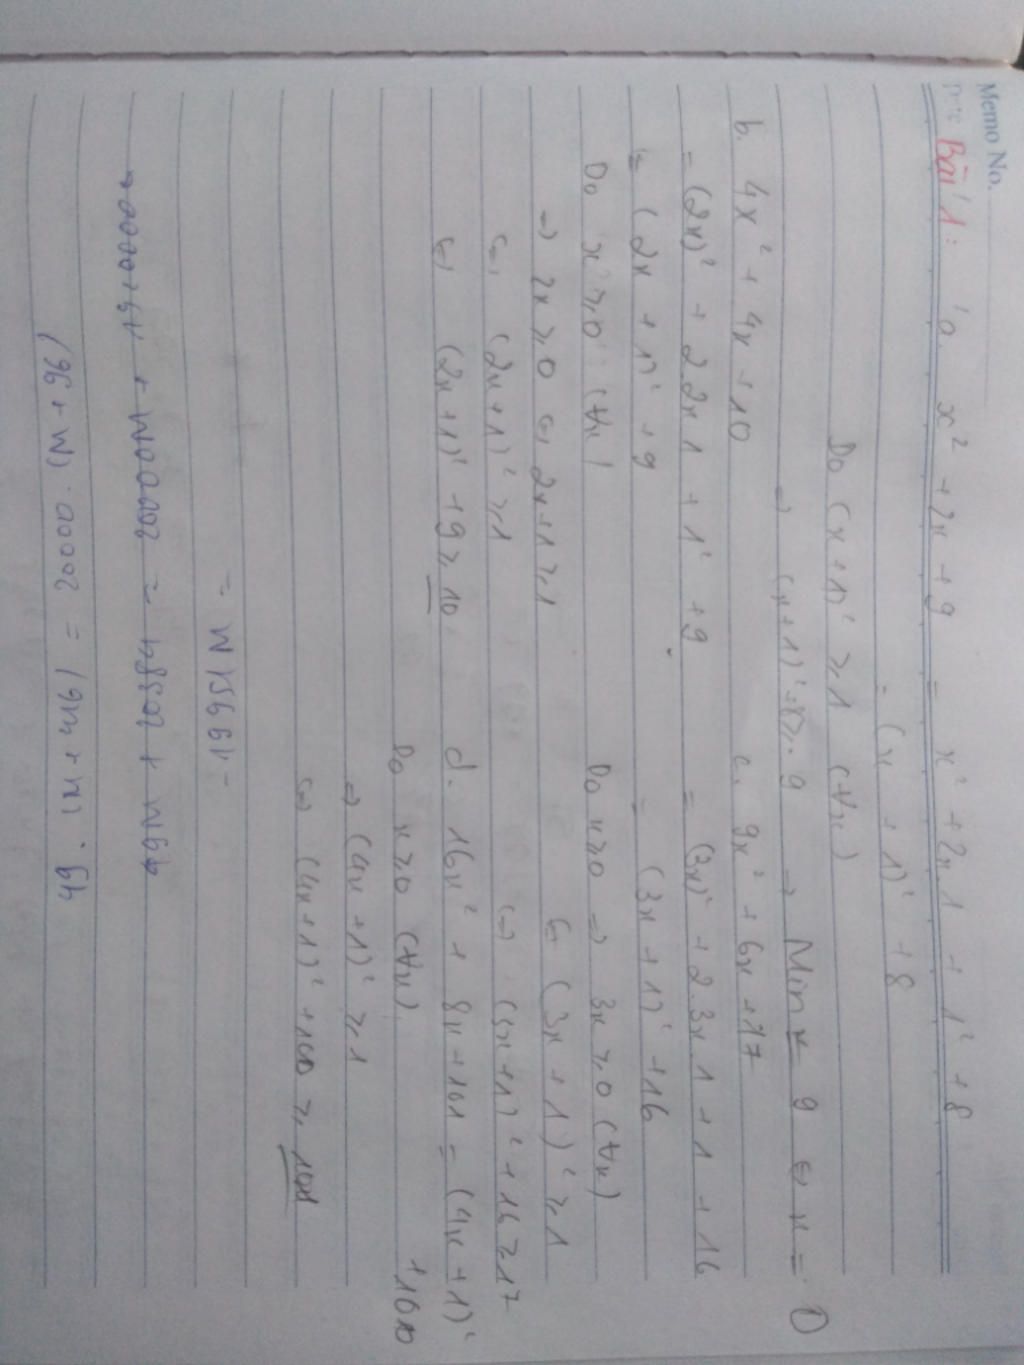 Memo No.
Bài 1: a. x² + 2x + 9 = x² + 2x1 + 1² + 8
= (x + 1)² + 8
Do (x + 1)² ≥ 1 (∀x)
=> (x+1)² + 8 ≥ 9 => Min = 9 <=> x = 0
b. 4x² + 4x + 10
= (2x)² + 2 2x 1 + 1² + 9
= (2x + 1)² + 9
Do x ≥ 0 (∀x)
=> 2x ≥ 0 <=> 2x+1 ≥ 1
<=> (2x+1)² ≥ 1
<=> (2x+1)² + 9 ≥ 10
c. 9x² + 6x + 17
= (3x)² + 2.3x 1 + 1 + 16
= (3x + 1)² + 16
Do x ≥ 0 => 3x ≥ 0 (∀x)
<=> (3x + 1)² ≥ 1
<=> (3x+1)² + 16 ≥ 17
d. 16x² + 8x + 101 = (4x + 1)²
+ 100
Do x ≥ 0 (∀x)
=> (4x +1)² ≥ 1
<=> (4x+1)² + 100 ≥ 101
-19951M =
49M + 20384 = 20000M +
49. (M + 416) = 20000. (M + 96)